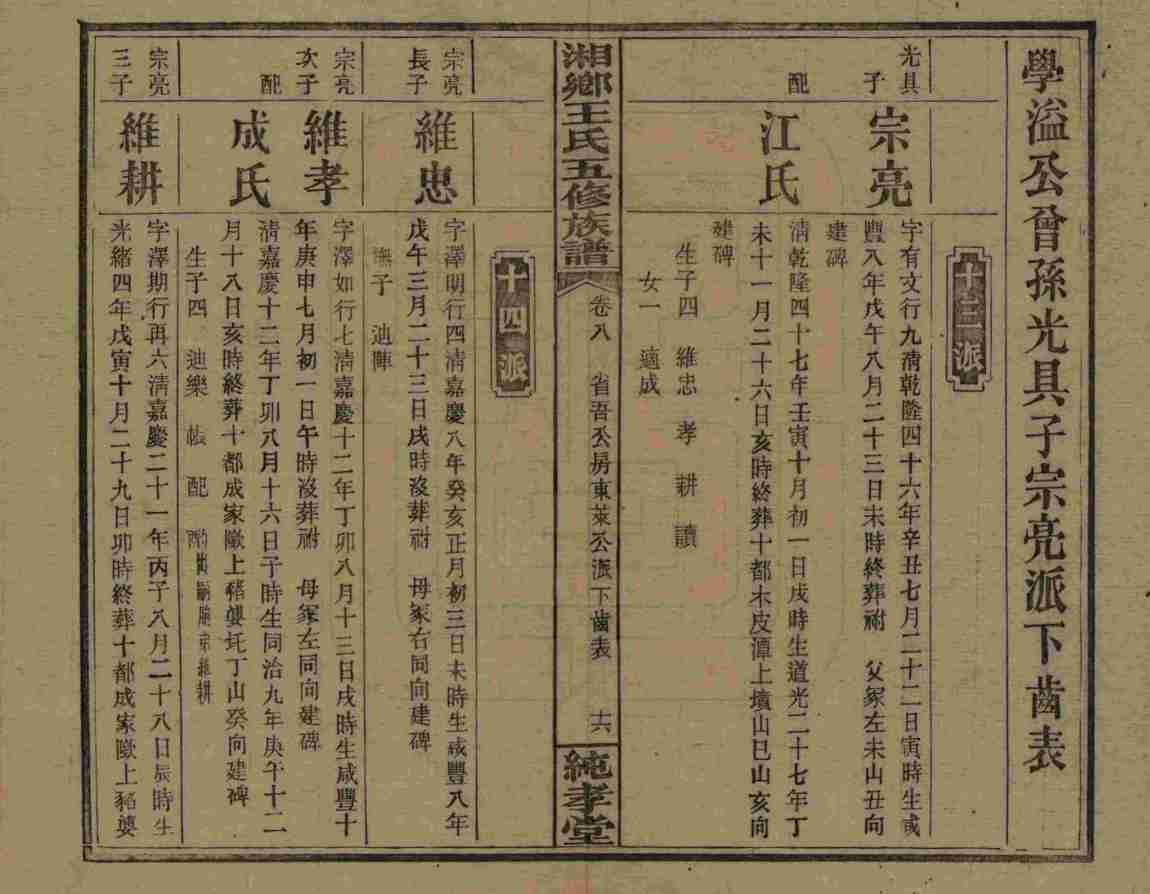 學溢公曾孫光具子宗亮派下齒表
十三派
光具
子
宗亮
字有文行九清乾隆四十六年辛丑七月二十二日寅時生咸
豐八年戊午八月二十三日未時終葬祔　父冢左未山丑向
建碑
配
江氏
清乾隆四十七年壬寅十月初一日戌時生道光二十七年丁
未十一月二十六日亥時終葬十都木皮潭上墳山巳山亥向
建碑
生子四　維忠　孝　耕　讀
女一　適成
湘鄉王氏五修族譜
卷八　省吾公房東萊公派下齒表　十六
純孝堂
十四派
宗亮
長子
維忠
字澤明行四清嘉慶八年癸亥正月初三日未時生咸豐八年
戊午三月二十三日戌時沒葬祔　母冢右同向建碑
撫子　迪陣
宗亮
次子
維孝
字澤如行七清嘉慶十二年丁卯八月十三日戌時生咸豐十
年庚申七月初一日午時沒葬祔　母冢左同向建碑
配
成氏
清嘉慶十二年丁卯八月十六日子時生同治九年庚午十二
月十八日亥時終葬十都成家陇上豬婆坨丁山癸向建碑
生子四　迪樂　帳　配　維耕
宗亮
三子
維耕
字澤期行再六清嘉慶二十一年丙子八月二十八日辰時生
光緒四年戊寅十月二十九日卯時終葬十都成家陇上豬婆